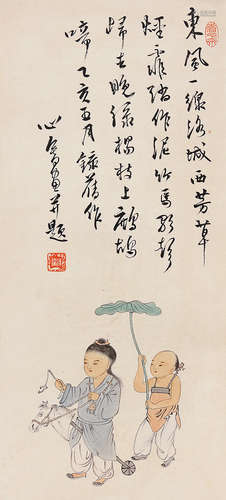 東風一線洛城西芳草
煙霏踏作泥竹馬
歸去晚綠楊枝上鷓鴣
啼乙亥五月錄舊作
心畬畫并題